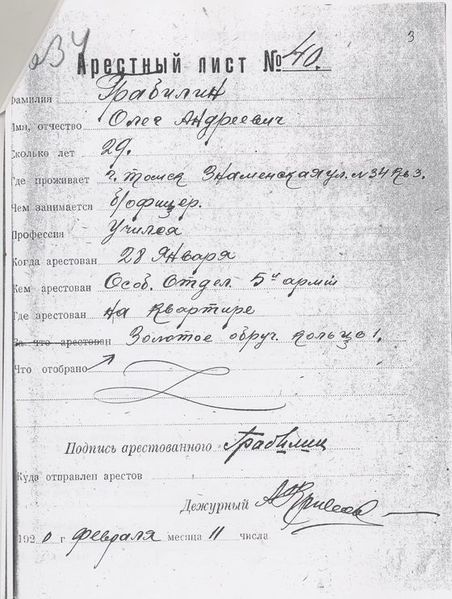 234
3
Арестный лист № 40.
Фамилия Грабилин
Имя, отчество Олег Андреевич
Сколько лет 29.
Где проживает г. Томск Знаменская ул. № 34 кв 3.
Чем занимается б/офицер.
Профессия Учился
Когда арестован 28 Января
Кем арестован Особ. Отдел. 5й армiи
Где арестован на квартире
За что арестован Золотое обруч. кольцо 1.
Что отобрано
Подпись арестованного Грабилин
Куда отправлен арестов
Дежурный
1920 г февраля месяца 11 числа